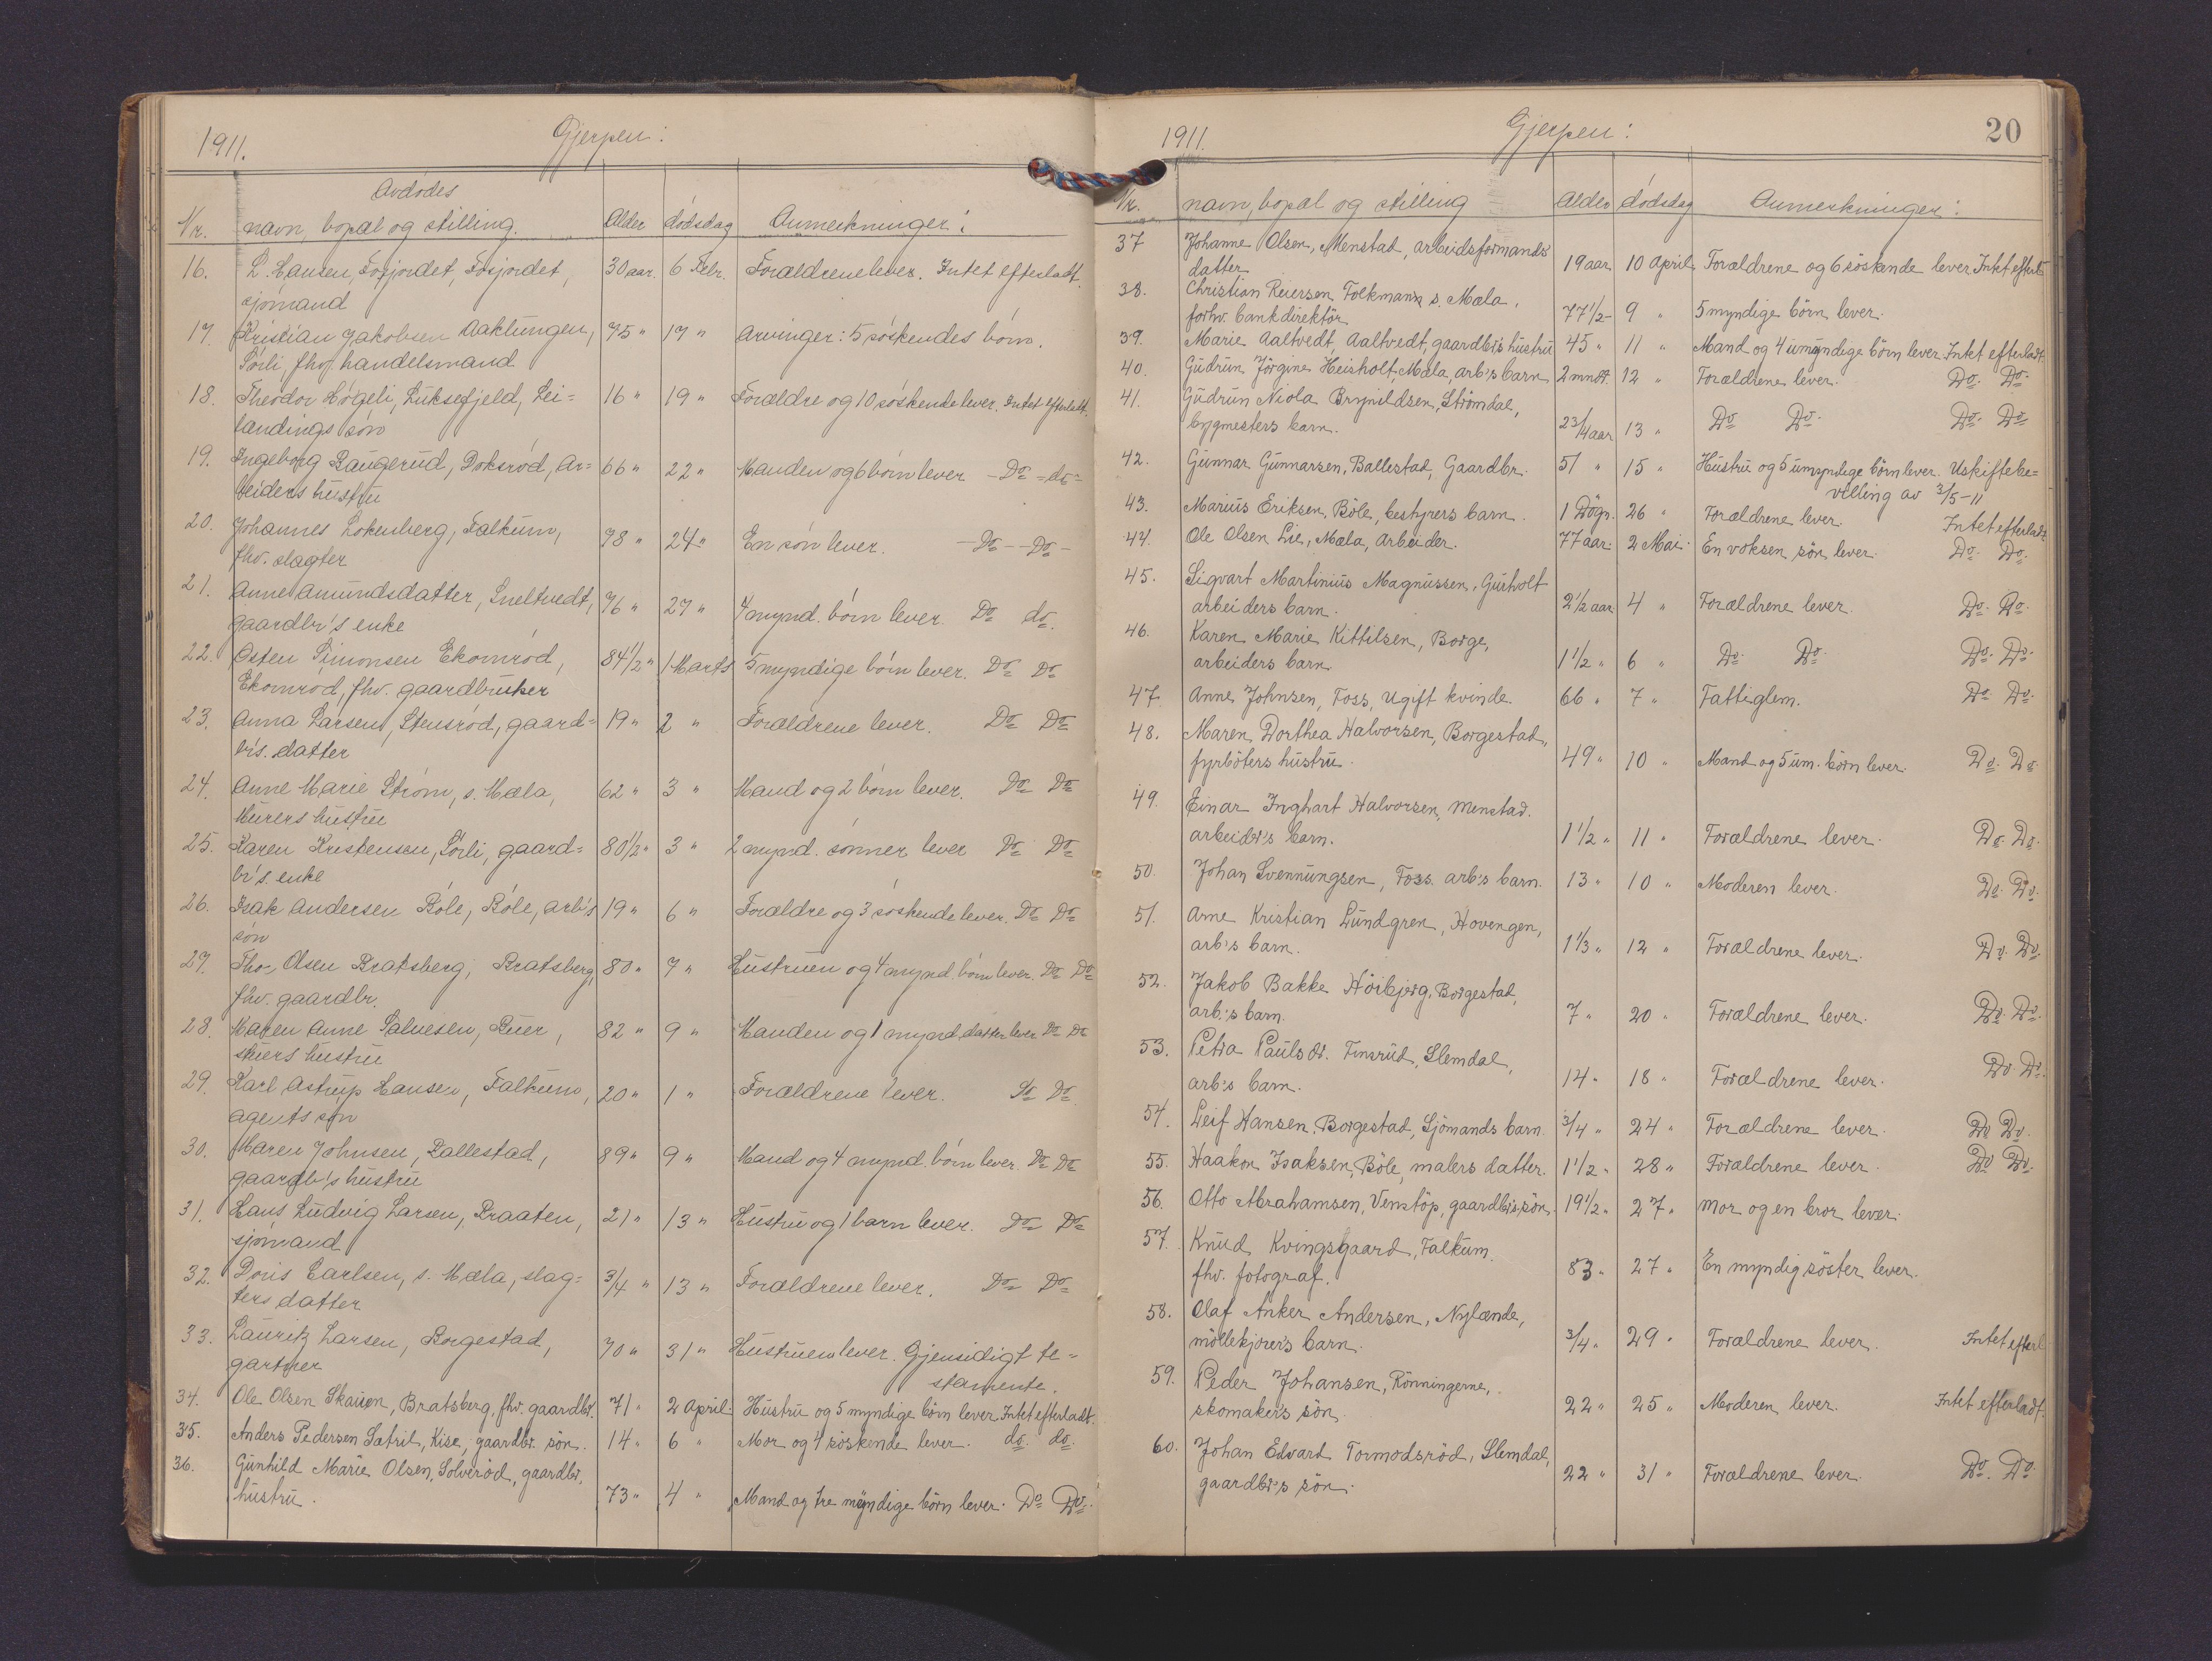 1911.
Gjerpen:
Avdødes
Nr. navn, bopæl og stilling. Alder dødsdag Anmerkninger:
16. L. Hansen, Fosjordet, Fosjordet, 30 aar. 6 Febr. Forældrene lever. Intet efterladt.
sjømand
17. Kristian Jakobsen Aaklungen, 75 " 17 " Arvinger: 5 søskendes børn.
Sørli, fhv. handelsmand
18. Theodor Høgeli, Luksefjeld, Lei= 16 " 19 " Forældre og 10 søskende lever. Intet efterladt.
landings søn
19. Ingeborg Raugerud, Doksrød, ar= 66 " 22 " Manden og 6 børn lever - Do - do -
beiders hustru
20. Johannes Lokenberg, Falkum, 78 " 24 " En søn lever. - Do - Do -
fhv. slagter
21. Anne Amundsdatter, Sneltvedt, 76 " 27 " 4 mynd. børn lever. Do do.
gaardbr's enke
22. Østen Simonsen Ekornrød, 84 1/2 " 1 Marts 5 myndige børn lever. Do Do
Ekornrød, fhv. gaardbruker
23. Anna Larsen, Stensrød, gaard= 19 " 2 " Forældrene lever. Do Do
br's. datter
24. Anne Marie Strøm, s. Mæla, 62 " 3 " Mand og 2 børn lever. Do Do
Murers hustru
25. Karen Kristensen, Sørli, gaard= 80 1/2 " 3 " 2 mynd. sønner lever Do Do
br's. enke
26. Isak Andersen Bøle, Bøle, arb's 19 " 6 " Forældre og 3 søskende lever. Do Do
søn
27. Thor Olsen Bratsberg, Bratsberg, 80 " 7 " Hustruen og 4 mynd. børn lever. Do Do
fhv. gaardbr.
28. Maren Anne Salvesen, Buer, 82 " 9 " Manden og 1 mynd. datter lever Do Do
skiers hustru
29. Karl Astrup Hansen, Falkum, 20 " 1 " Forældrene lever. Do Do
agents søn
30. Maren Johnsen, Ballestad, 89 " 9 " Mand og 4 mynd. børn lever. Do Do
gaardbr's hustru
31. Hans Ludvig Larsen, Braaten, 21 " 13 " Hustru og 1 barn lever. Do Do
sjømand
32. Doris Carlsen, s. Mæla, slag= 3/4 " 13 " Forældrene lever. Do Do
ters datter
33. Lauritz Larsen, Borgestad, 70 " 31 " Hustruen lever. Gjensidigt te=
gartner stamente.
34. Ole Olsen Skauen, Bratsberg, fhv. gaardbr. 71 " 2 April. Hustru og 5 myndige børn lever Intet efterladt.
35. Anders Pedersen Satril, Kise, gaardbr. søn. 14 " 6 " Mor og 4 søskende lever. do. do.
36. Gunhild Marie Olsen, Solverød, gaardbr.
hustru. 73 " 4 " Mand og tre myndige børn lever. Do Do.
1911.
Gjerpen:
20
Nr. navn, bopæl og stilling Alder dødsdag Anmerkninger:
37 Johanne Olsen, Menstad, arbeidsformands
datter. 19 aar 10 April Forældrene og 6 søskende lever Intet efterl.
38. Christian Reiersen Folkmann s. Mæla,
forhv. bankdirektør 77 1/2 - 9 " 5 myndige børn lever.
39. Marie Aaltvedt, Aaltvedt, gaardbr's hustru 45 " 11 " Mand og 4 umyndige børn lever Intet efterladt.
40. Gudrun Jørgine Heisholt, Mæla, arb's barn 2 mndr. 12 " Forældrene lever. Do. Do.
41. Gudrun Niola Brynildsen, Strømdal,
bygmesters barn. 2 3/4 aar 13 " Do Do. Do. Do
42. Gunnar Gunnarsen, Ballestad, Gaardbr. 51 " 15 " Hustru og 5 umyndige børn lever. Uskiftebe=
villing av 3/5-11
43. Marius Eriksen, Bøle, bestyrers barn. 1 Døgn. 26 " Forældrene lever. Intet efterladt.
44. Ole Olsen Lie, Mæla, Arbeider. 77 aar. 2 Mai. En voksen søn lever. Do. Do.
45. Sigvart Martinius Magnussen, Gusholt
arbeiders barn. 2 1/2 aar 4 " Forældrene lever. Do. Do.
46. Karen Marie Kittilsen, Borge,
arbeiders barn. 1 1/2 " 6 " Do. Do. Do. Do.
47. Anne Johnsen, Foss, Ugift kvinde. 66 " 7 " Fattiglem. Do. Do.
48. Maren Dorthea Halvorsen, Borgestad,
fyrbøters hustru. 49 " 10 " Mand og 5 um. børn lever. Do. Do.
49. Einar Inghart Halvorsen, Menstad.
arbeider's barn. 1 1/2 " 11 " Forældrene lever. Do. Do.
50. Johan Svennungsen, Foss. arb's barn. 13 " 10 " Moderen lever. Do. Do.
51. Arne Kristian Lundgren, Hovengen,
arb's barn. 1 1/3 " 12 " Forældrene lever. Do. Do.
52. Jakob Bakke Høibjerg, Borgestad,
arb's barn. 7 " 20 " Forældrene lever. Do. Do.
53. Petra Paulsdr. Finsrud, Slemdal,
arb's barn. 14 " 18 " Forældrene lever. Do. Do.
54. Leif Hansen. Borgestad, Sjømands barn. 3/4 " 24 " Forældrene lever. Do Do.
55. Haakon Isaksen, Bøle, malers datter. 1 1/2 " 28 " Forældrene lever. Do Do.
56. Otto Abrahamsen, Venstøp, gaardbr's søn. 19 1/2 " 27 " Mor og en bror lever.
57. Knud Kvingsgaard, Falkum.
fhv. fotograf. 83 " 27 " En myndig søster lever.
58. Olaf Anker Andersen, Nylænde,
møllekjører's barn. 3/4 " 29 " Forældrene lever. Intet efterl
59. Peder Johansen, Rønningerne,
skomaker's søn. 22 " 25 " Moderen lever. Intet efterladt.
60. Johan Edvard Tormodsrød, Slemdal,
gaardbr's søn. 22 " 31 " Forældrene lever. Do. Do.